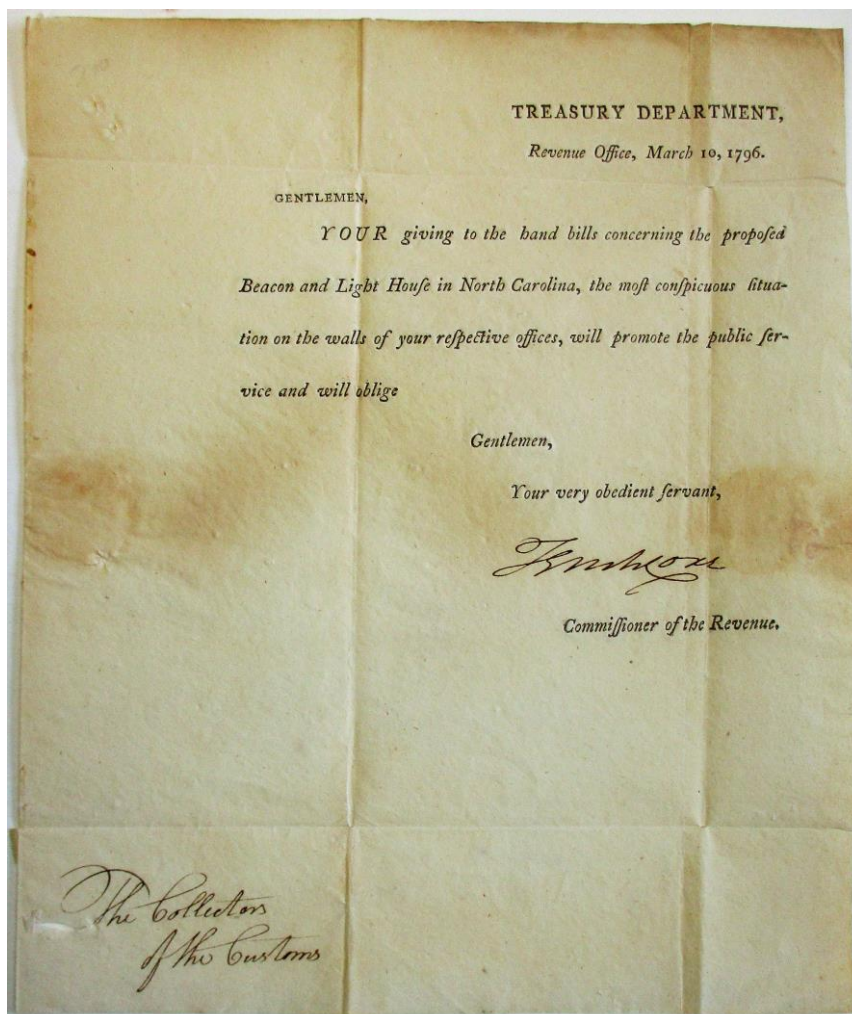 TREASURY DEPARTMENT,
Revenue Office, March 10, 1796.
GENTLEMEN,
YOUR giving to the hand bills concerning the propoſed
Beacon and Light Houſe in North Carolina, the moſt conſpicuous ſitua-
tion on the walls of your reſpective offices, will promote the public ſer-
vice and will oblige
Gentlemen,
Your very obedient ſervant,
Tench Coxe
Commiſſioner of the Revenue.
The Collectors
of the Customs